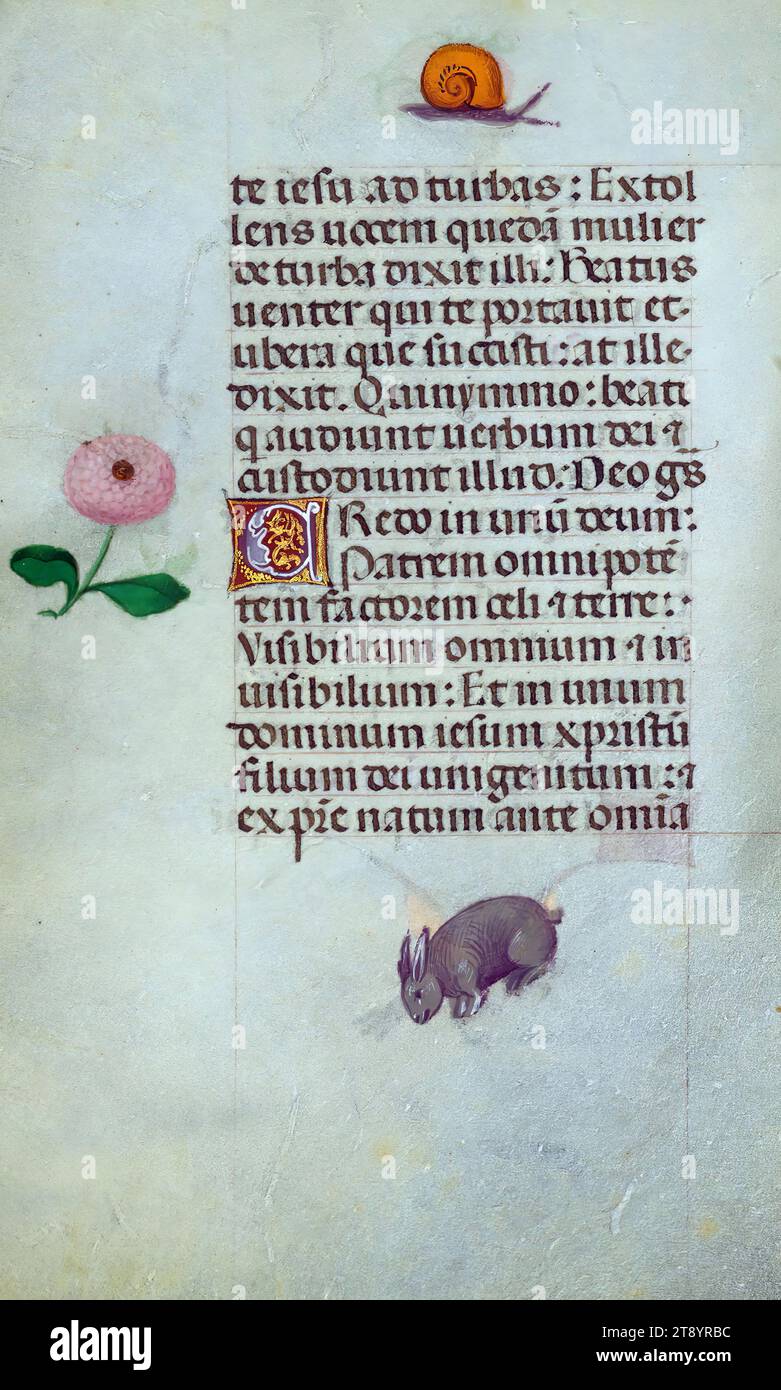 te iesu ad turbas : Extol
lens uocem quedā mulier
de turba dixit illi : Beatus
uenter qui te portauit et
ubera que succisti : at ille
dixit . Quinymmo : beati
q audiunt uerbum dei ⁊
custodiunt illud . Deo gr̄s
Credo in unū deum :
Patrem omnipotē
tem factorem celi ⁊ terre :
Visibilium omnium ⁊ in
uisibilium : Et in unum
dominum iesum xpristū
filium dei unigenitum : ⁊
ex pr̄e natum ante omīa
alamy
alamy
Image ID: 2T8YRBC
www.alamy.com